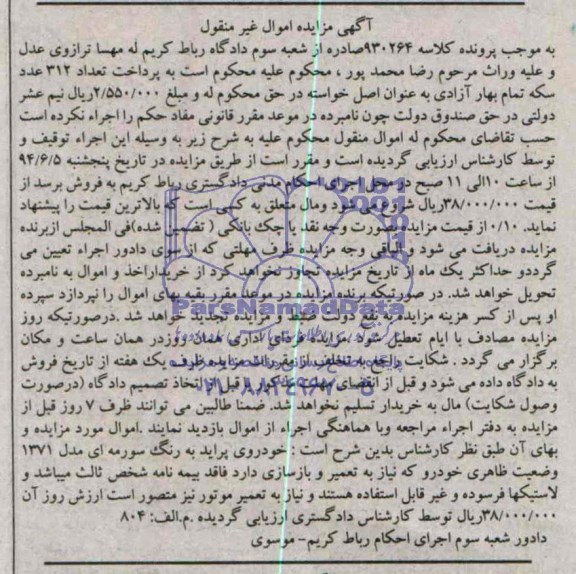 آگهی مزایده اموال غیر منقول
به موجب پرونده کلاسه ۹۳۰۲۶۴صادره از شعبه سوم دادگاه رباط کریم له مهسا ترازوی عدل
و علیه وراث مرحوم رضا محمد پور ، محکوم علیه محکوم است به پرداخت تعداد ۳۱۲ عدد
سکه تمام بهار آزادی به عنوان اصل خواسته در حق محکوم له و مبلغ ۲/۵۵۰/۰۰۰ریال نیم عشر
دولتی در حق صندوق دولت چون نامبرده در موعد مقرر قانونی مفاد حکم را اجراء نکرده است
حسب تقاضای محکوم له اموال منقول محکوم علیه به شرح زیر به وسیله این اجراء توقیف و
توسط کارشناس ارزیابی گردیده است و مقرر است از طریق مزایده در تاریخ پنجشنبه ۹۴/۶/۵
از ساعت ۱۰الی ۱۱ صبح در محل اجرای احکام مدنی دادگستری رباط کریم به فروش برسد از
قیمت ۳۸/۰۰۰/۰۰۰ریال شروع می شود ومال متعلق به کسی است که بالاترین قیمت را پیشنهاد
نماید. ۰/۱۰ از قیمت مزایده بصورت وجه نقد یا چک بانکی ( تضمین شده)فی المجلس ازبرنده
مزایده دریافت می شود و الباقی وجه مزایده ظرف مهلتی که از سوی دادور اجراء تعیین می
گرددو حداکثر یک ماه از تاریخ مزایده تجاوز نخواهد کرد از خریداراخذ و اموال به نامبرده
تحویل خواهد شد. در صورتیکه برنده مزایده در موعد مقرر بقیه بهای اموال را نپردازد سپرده
او پس از کسر هزینه مزایده به نفع دولت ضبط و مزایده تجدید خواهد شد .درصورتیکه روز
مزایده مصادف با ایام تعطیل شود ،مزایده فردای اداری همان روزدر همان ساعت و مکان
برگزار می گردد . شکایت راجع به تخلف از مقررات مزایده ظرف یک هفته از تاریخ فروش
به دادگاه داده می شود و قبل از انقضای مهلت مذکور یا قبل از اتخاذ تصمیم دادگاه (درصورت
وصول شکایت) مال به خریدار تسلیم نخواهد شد. ضمنا طالبین می توانند ظرف ۷ روز قبل از
مزایده به دفتر اجراء مراجعه وبا هماهنگی اجراء از اموال بازدید نمایند .اموال مورد مزایده و
بهای آن طبق نظر کارشناس بدین شرح است : خودروی پراید به رنگ سورمه ای مدل ۱۳۷۱
وضعیت ظاهری خودرو که نیاز به تعمیر و بازسازی دارد فاقد بیمه نامه شخص ثالث میباشد و
لاستیکها فرسوده و غیر قابل استفاده هستند و نیاز به تعمیر موتور نیز متصور است ارزش روز آن
۳۸/۰۰۰/۰۰۰ریال توسط کارشناس دادگستری ارزیابی گردیده .م.الف: ۸۰۴
دادور شعبه سوم اجرای احکام رباط کریم- موسوی
ParsNamadData